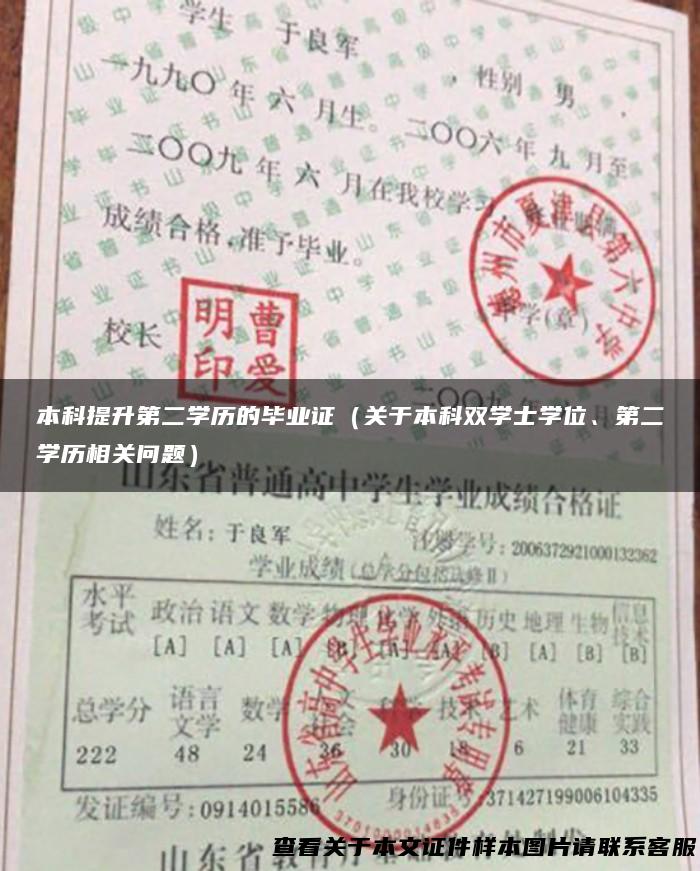 学生 于良军 , 性别 男 .
一九九〇 年 六 月生。 二〇〇六 年 九 月至
二〇〇九 年 六 月在我校学习
成绩合格,准予毕业。
夏津县第六中学
校长
曹爱
明印
学(章)
二〇〇九 月
本科提升第二学历的毕业证（关于本科双学士学位、第二
学历相关问题）
山东省普通高中学生学业成绩合格证
姓名:于良军
注册学号:2006372921000132362
学业成绩(总学分包括选修Ⅱ)
水平
考试
政治 语文 数学 物理 化学 外语 历史 地理 生物 信息
技术
[A] [A] [A] [B] [A] [B] [A] [B] [B]
总学分 语言
文学 数学 科学 技术 艺术 体育
健康 综合
实践
222 48 24 36 30 18 6 21 33
山东省高中学生学业水平考试专用章
发证编号:0914015586 身份证号:371427199006104335
山东省教育厅
查看关于本文证件样本图片请联系客服